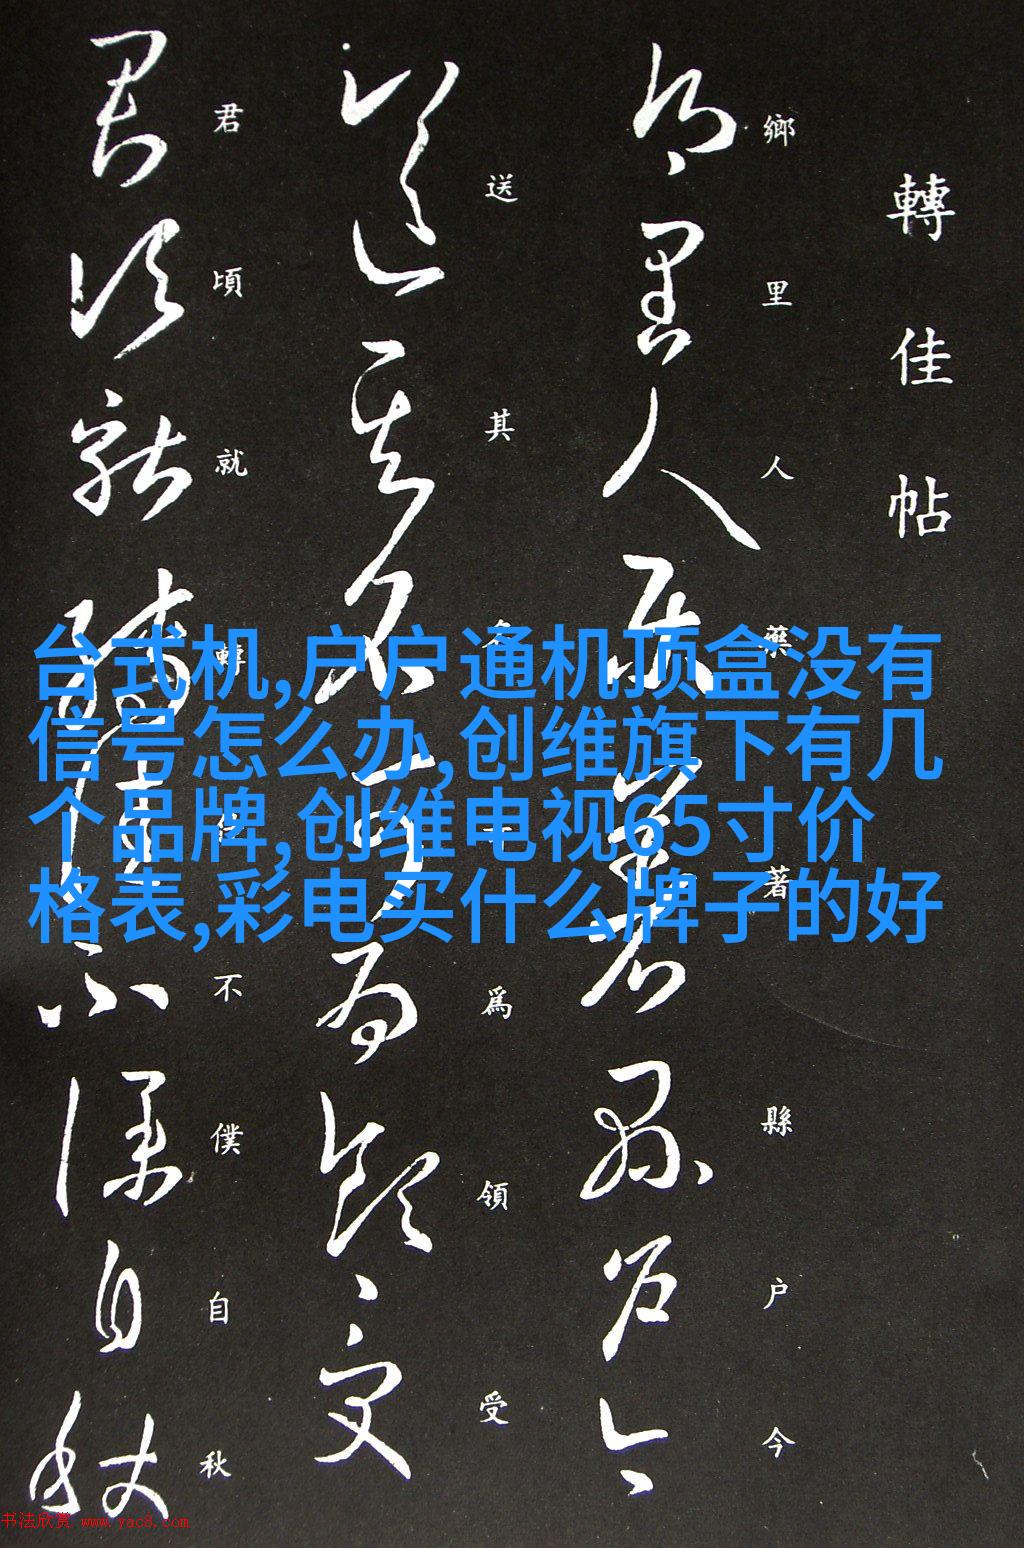 轉佳帖
鄉里人藥著縣户今
送其名爲領受
君頃就轉佳不僕自秋
台式机,户户通机顶盒没有
信号怎么办,创维旗下有几
个品牌,创维电视65寸价
格表,彩电买什么牌子的好
书法欣赏 www.yac8.com